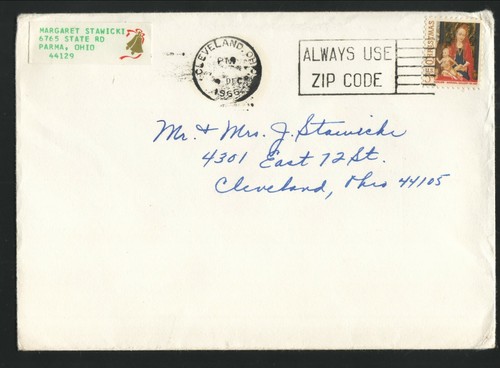 MARGARET STAWICKI
6765 STATE RD
PARMA, OHIO
44129
CLEVELAND, OH
PM
DEC
1966
ALWAYS USE
ZIP CODE
CHRISTMAS
Mr. & Mrs. J. Stawicki
4301 East 72 St.
Cleveland, Ohio 44105